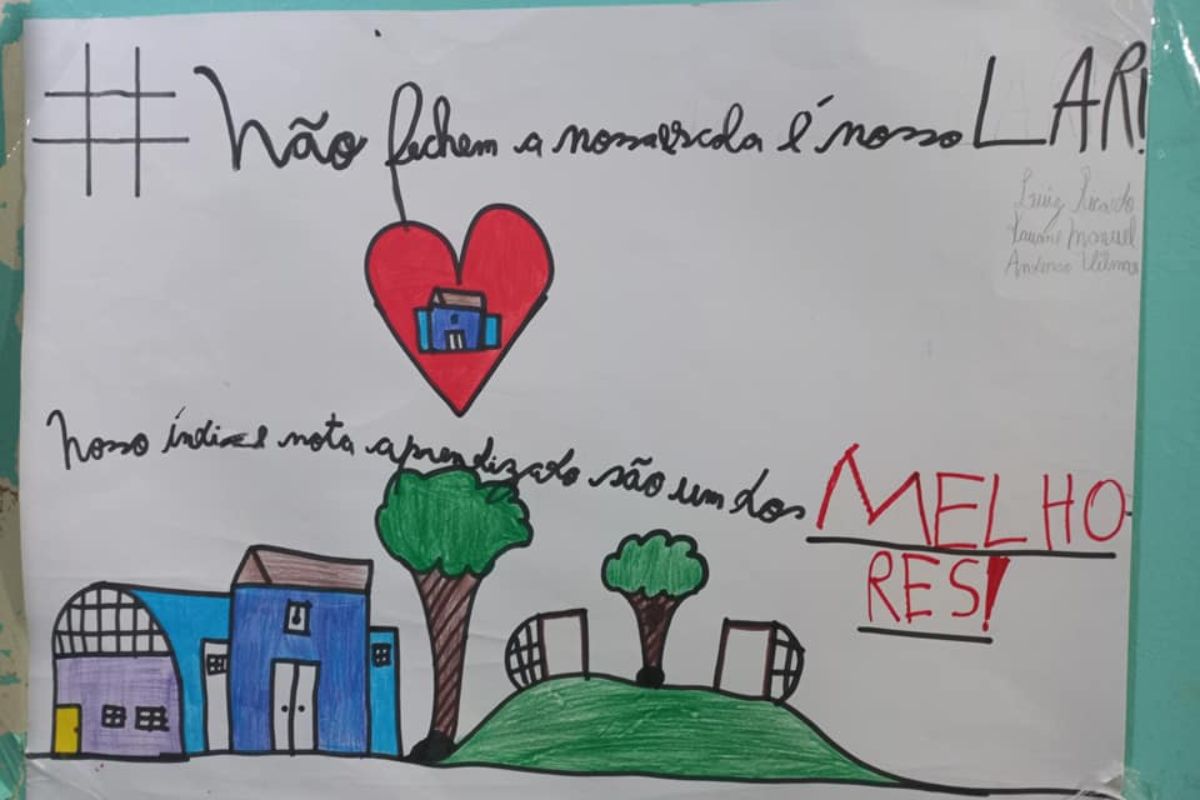 # Não fechem a nossa escola é nosso LAR!
Luiz Ricardo
Manuel
Nosso índice nota aprendizato são um dos MELHO
RES!